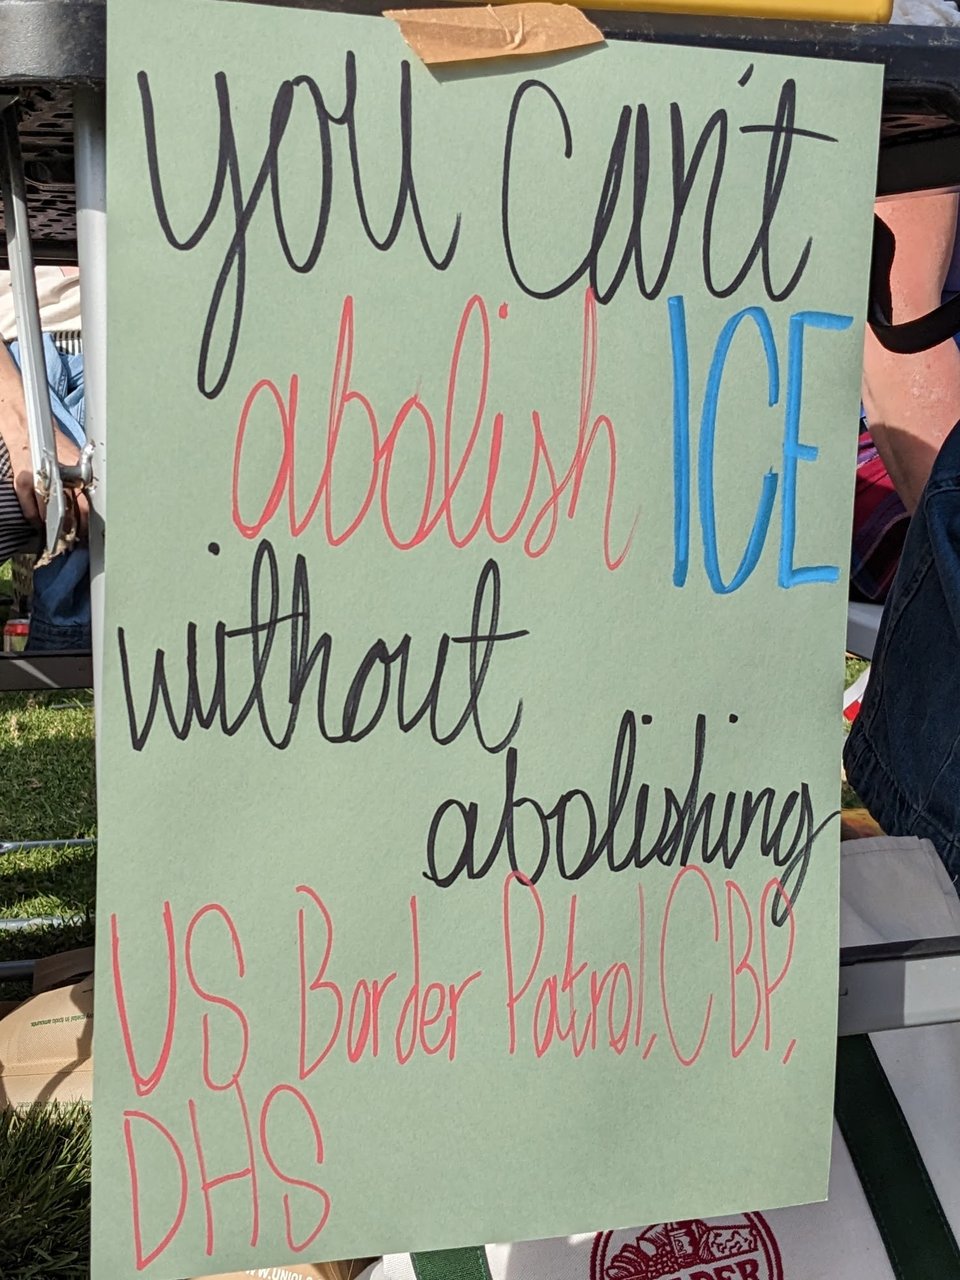 you can't
abolish ICE
without
abolishing
US Border Patrol, CBP,
DHS